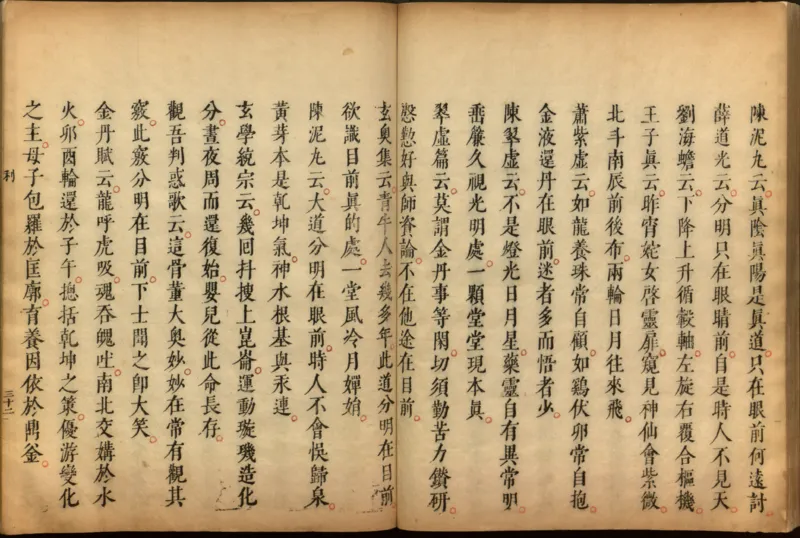 陳泥丸云眞陰眞陽是眞道只在眼前何遠討
薛道光云分明只在眼睛前自是時人不見天
劉海蟾云下降上升循轂軸左旋右覆合樞機
王子眞云昨宵姹女啓靈扉窺見神仙會紫微
北斗南辰前後布兩輪日月往來飛
蕭紫虛云如龍養珠常自顧如鷄伏卵常自抱
金液還丹在眼前迷者多而悟者少
陳翠虛云不是燈光日月星藥靈自有異常明
垂簾久視光明處一顆堂堂現本眞
翠虛篇云莫謂金丹事等閑切須勤苦力鑽研
慇懃好與師資論不在他途在目前
玄奧集云青牛人去幾多年此道分明在目前
欲識目前眞的處一堂風冷月嬋娟
陳泥丸云大道分明在眼前時人不會悞歸泉
黃芽本是乾坤氣神水根基與汞連
玄學統宗云幾回抖搜上崑崙運動璇璣造化
分晝夜周而還復始嬰兒從此命長存
觀吾判惑歌云這骨董大奥妙妙在常有觀其
竅此竅分明在目前下士聞之卽大笑
金丹賦云龍呼虎吸魂吞魄吐南北交媾於水
火卯酉輪還於子午揔括乾坤之策優游變化
之主母子包羅於匡廓育養因依於鼎釜
利
三十二